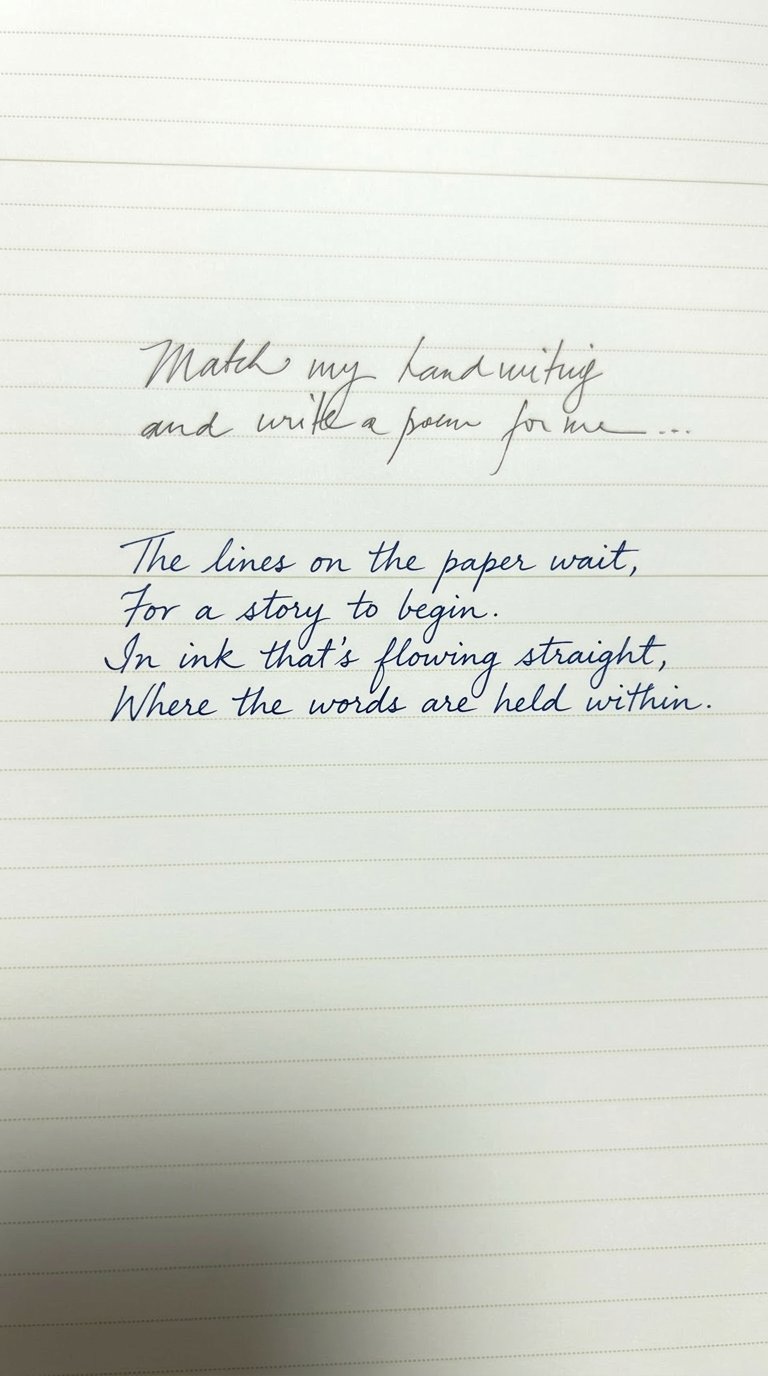 Match my handwriting
and write a poem for me...
The lines on the paper wait,
For a story to begin.
In ink that's flowing straight,
Where the words are held within.